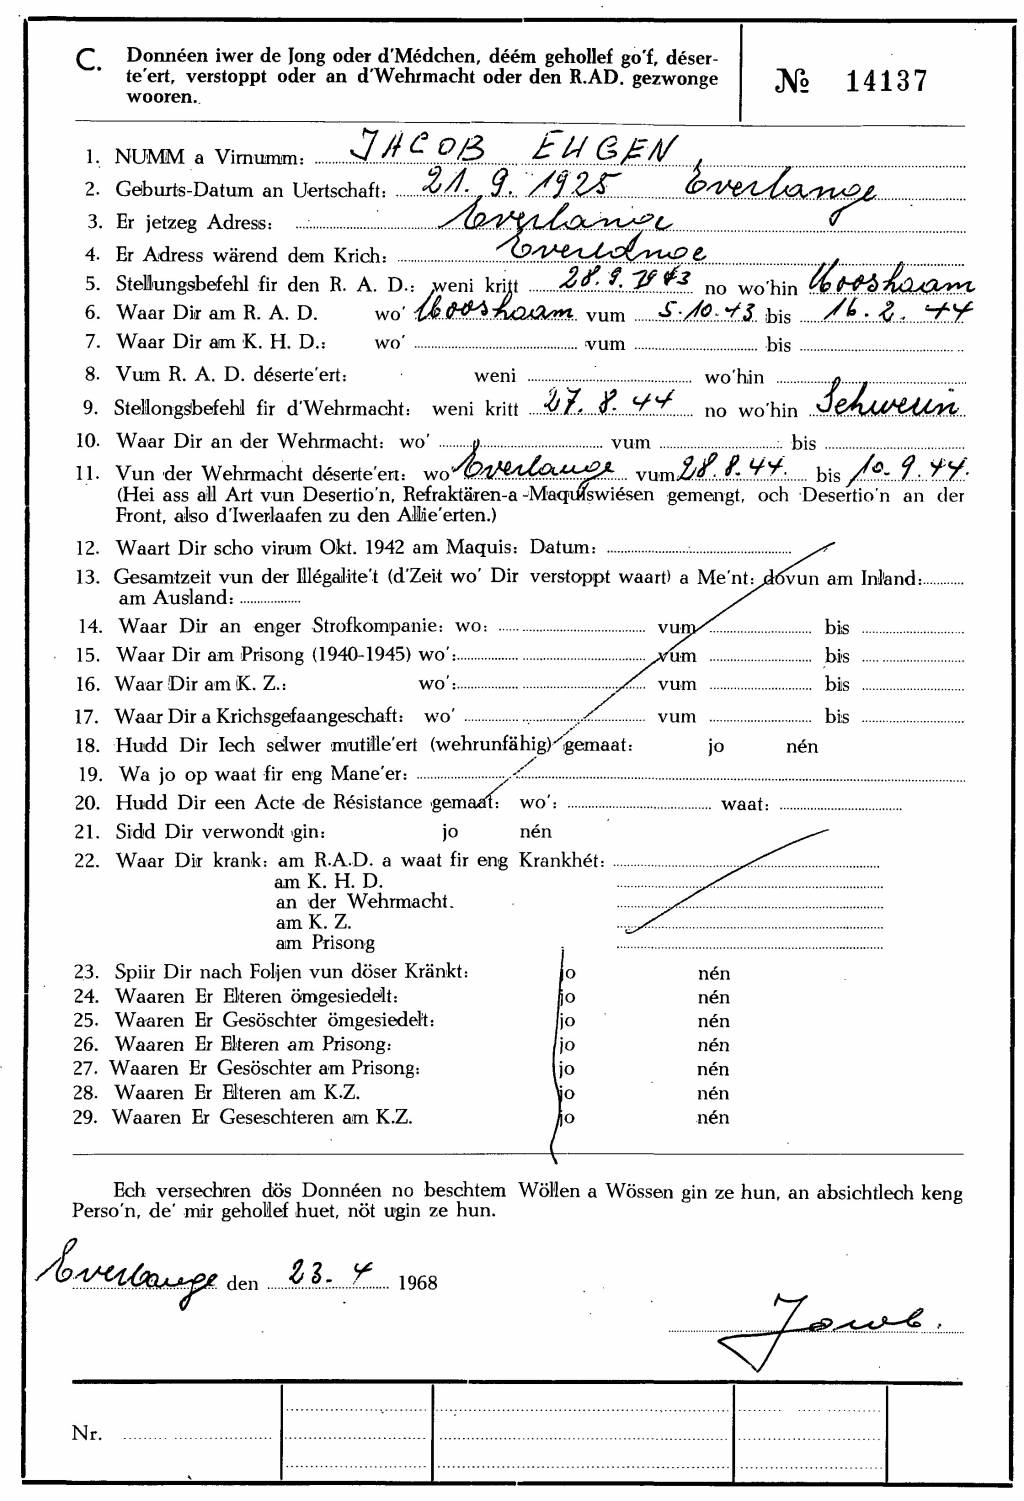 C. Donnéen iwer de Jong oder d'Médchen, déém gehollef go'f, déser-
te'ert, verstoppt oder an d'Wehrmacht oder den R.AD. gezwonge
wooren.
№ 14137
1. NUMM a Virnumm: JACOB EUGEN
2. Geburts-Datum an Uertschaft: 21. 9. 1925 Everlange
3. Er jetzeg Adress: Everlange
4. Er Adress wärend dem Krich: Everlange
5. Stellungsbefehl fir den R. A. D.: weni kritt 28. 9. 1943 no wo'hin Mooshaam
6. Waar Dir am R. A. D. wo' Mooshaam vum 5.10.43 bis 16. 2. 44
7. Waar Dir am K. H. D.: wo' vum bis
8. Vum R. A. D. déserte'ert: weni wo'hin
9. Stellongsbefehl fir d'Wehrmacht: weni kritt 27. 8. 44 no wo'hin Schwerin
10. Waar Dir an der Wehrmacht: wo' vum bis
11. Vun der Wehrmacht déserte'ert: wo' Everlange vum 28. 8. 44. bis 10. 9. 44.
(Hei ass all Art vun Desertio'n, Refraktären-a-Maquiswiésen gemengt, och Desertio'n an der
Front, also d'Iwerlaafen zu den Allie'erten.)
12. Waart Dir scho virum Okt. 1942 am Maquis: Datum:
13. Gesamtzeit vun der Illégalite't (d'Zeit wo' Dir verstoppt waart) a Me'nt: dovun am Inland:
am Ausland:
14. Waar Dir an enger Strofkompanie: wo: vum bis
15. Waar Dir am Prisong (1940-1945) wo': vum bis
16. Waar Dir am K. Z.: wo': vum bis
17. Waar Dir a Krichsgefaangeschaft: wo' vum bis
18. Hudd Dir Iech selwer mutille'ert (wehrunfähig) gemaat: jo nén
19. Wa jo op waat fir eng Mane'er:
20. Hudd Dir een Acte de Résistance gemaat: wo': waat:
21. Sidd Dir verwondt gin: jo nén
22. Waar Dir krank: am R.A.D. a waat fir eng Krankhét:
am K. H. D.
an der Wehrmacht.
am K. Z.
am Prisong
23. Spiir Dir nach Foljen vun döser Kränkt: jo nén
24. Waaren Er Elteren ömgesiedelt: jo nén
25. Waaren Er Gesöschter ömgesiedelt: jo nén
26. Waaren Er Elteren am Prisong: jo nén
27. Waaren Er Gesöschter am Prisong: jo nén
28. Waaren Er Elteren am K.Z. jo nén
29. Waaren Er Geseschteren am K.Z. jo nén
Ech versechren dös Donnéen no beschtem Wöllen a Wössen gin ze hun, an absichtlech keng
Perso'n, de' mir gehollef huet, nöt ugin ze hun.
Everlange den 23. 4 1968
Jacob.
Nr.